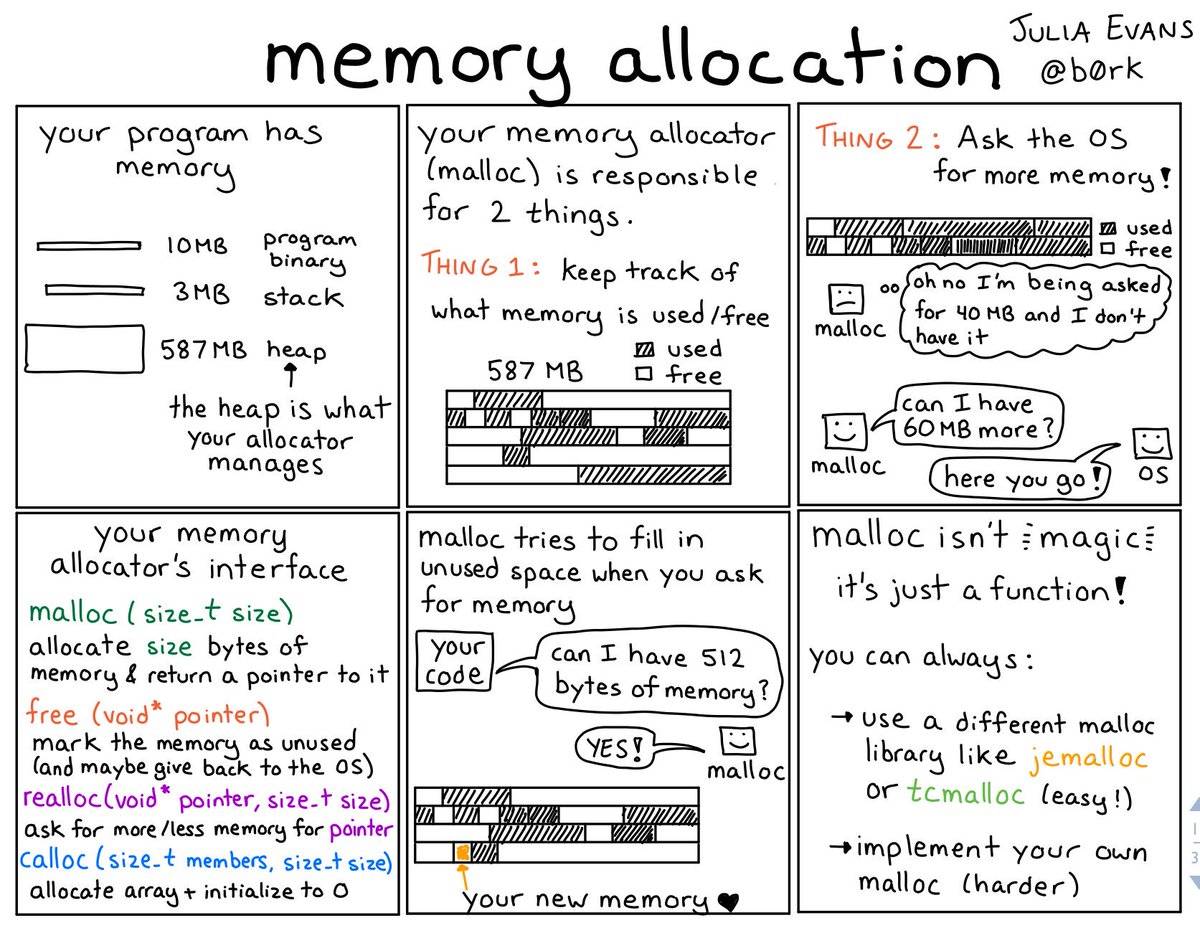 memory allocation
JULIA EVANS
@b0rk
your program has
memory
10MB program
binary
3MB stack
587MB heap
the heap is what
your allocator
manages
your memory allocator
(malloc) is responsible
for 2 things.
THING 1: keep track of
what memory is used/free
587 MB
used
free
THING 2: Ask the OS
for more memory!
used
free
oh no I'm being asked
for 40 MB and I don't
have it
malloc
can I have
60MB more?
malloc
here you go!
OS
your memory
allocator's interface
malloc (size_t size)
allocate size bytes of
memory & return a pointer to it
free (void* pointer)
mark the memory as unused
(and maybe give back to the OS)
realloc(void* pointer, size_t size)
ask for more/less memory for pointer
calloc (size_t members, size_t size)
allocate array + initialize to 0
malloc tries to fill in
unused space when you ask
for memory
your
code
can I have 512
bytes of memory?
YES!
malloc
your new memory ♥
malloc isn't magic
it's just a function!
you can always:
→ use a different malloc
library like jemalloc
or tcmalloc (easy!)
→ implement your own
malloc (harder)
1
3